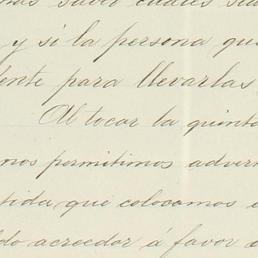 saber cuales
y si la persona que
ente para llevarlas
Al tocar la quinta
nos permitimos adver
tida que colocamos
do acreedor á favor